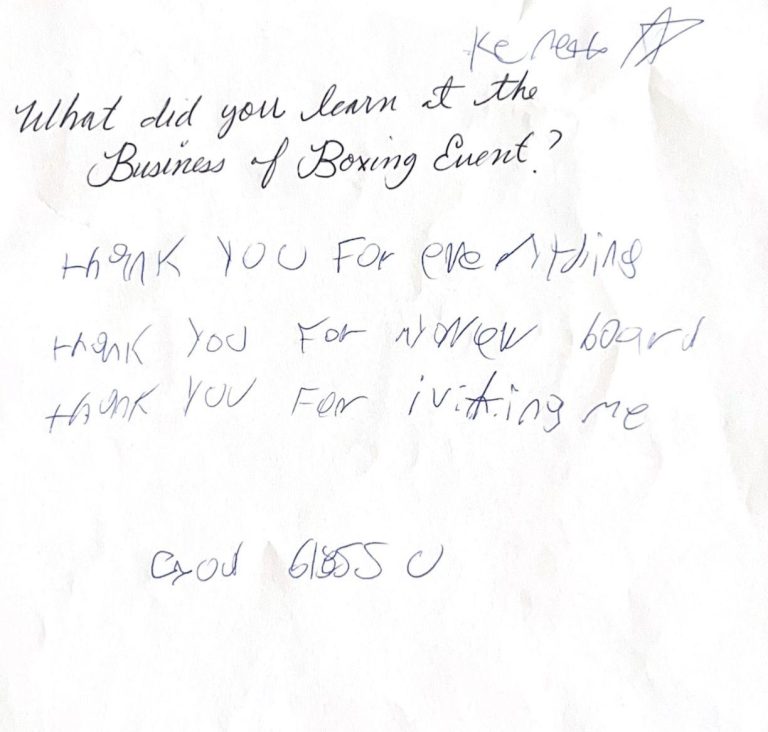 What did you learn at the
Business of Boxing Event?
thank YOU For everything
thank YOU For new board
thank YOU For iviting me
God 61855 U